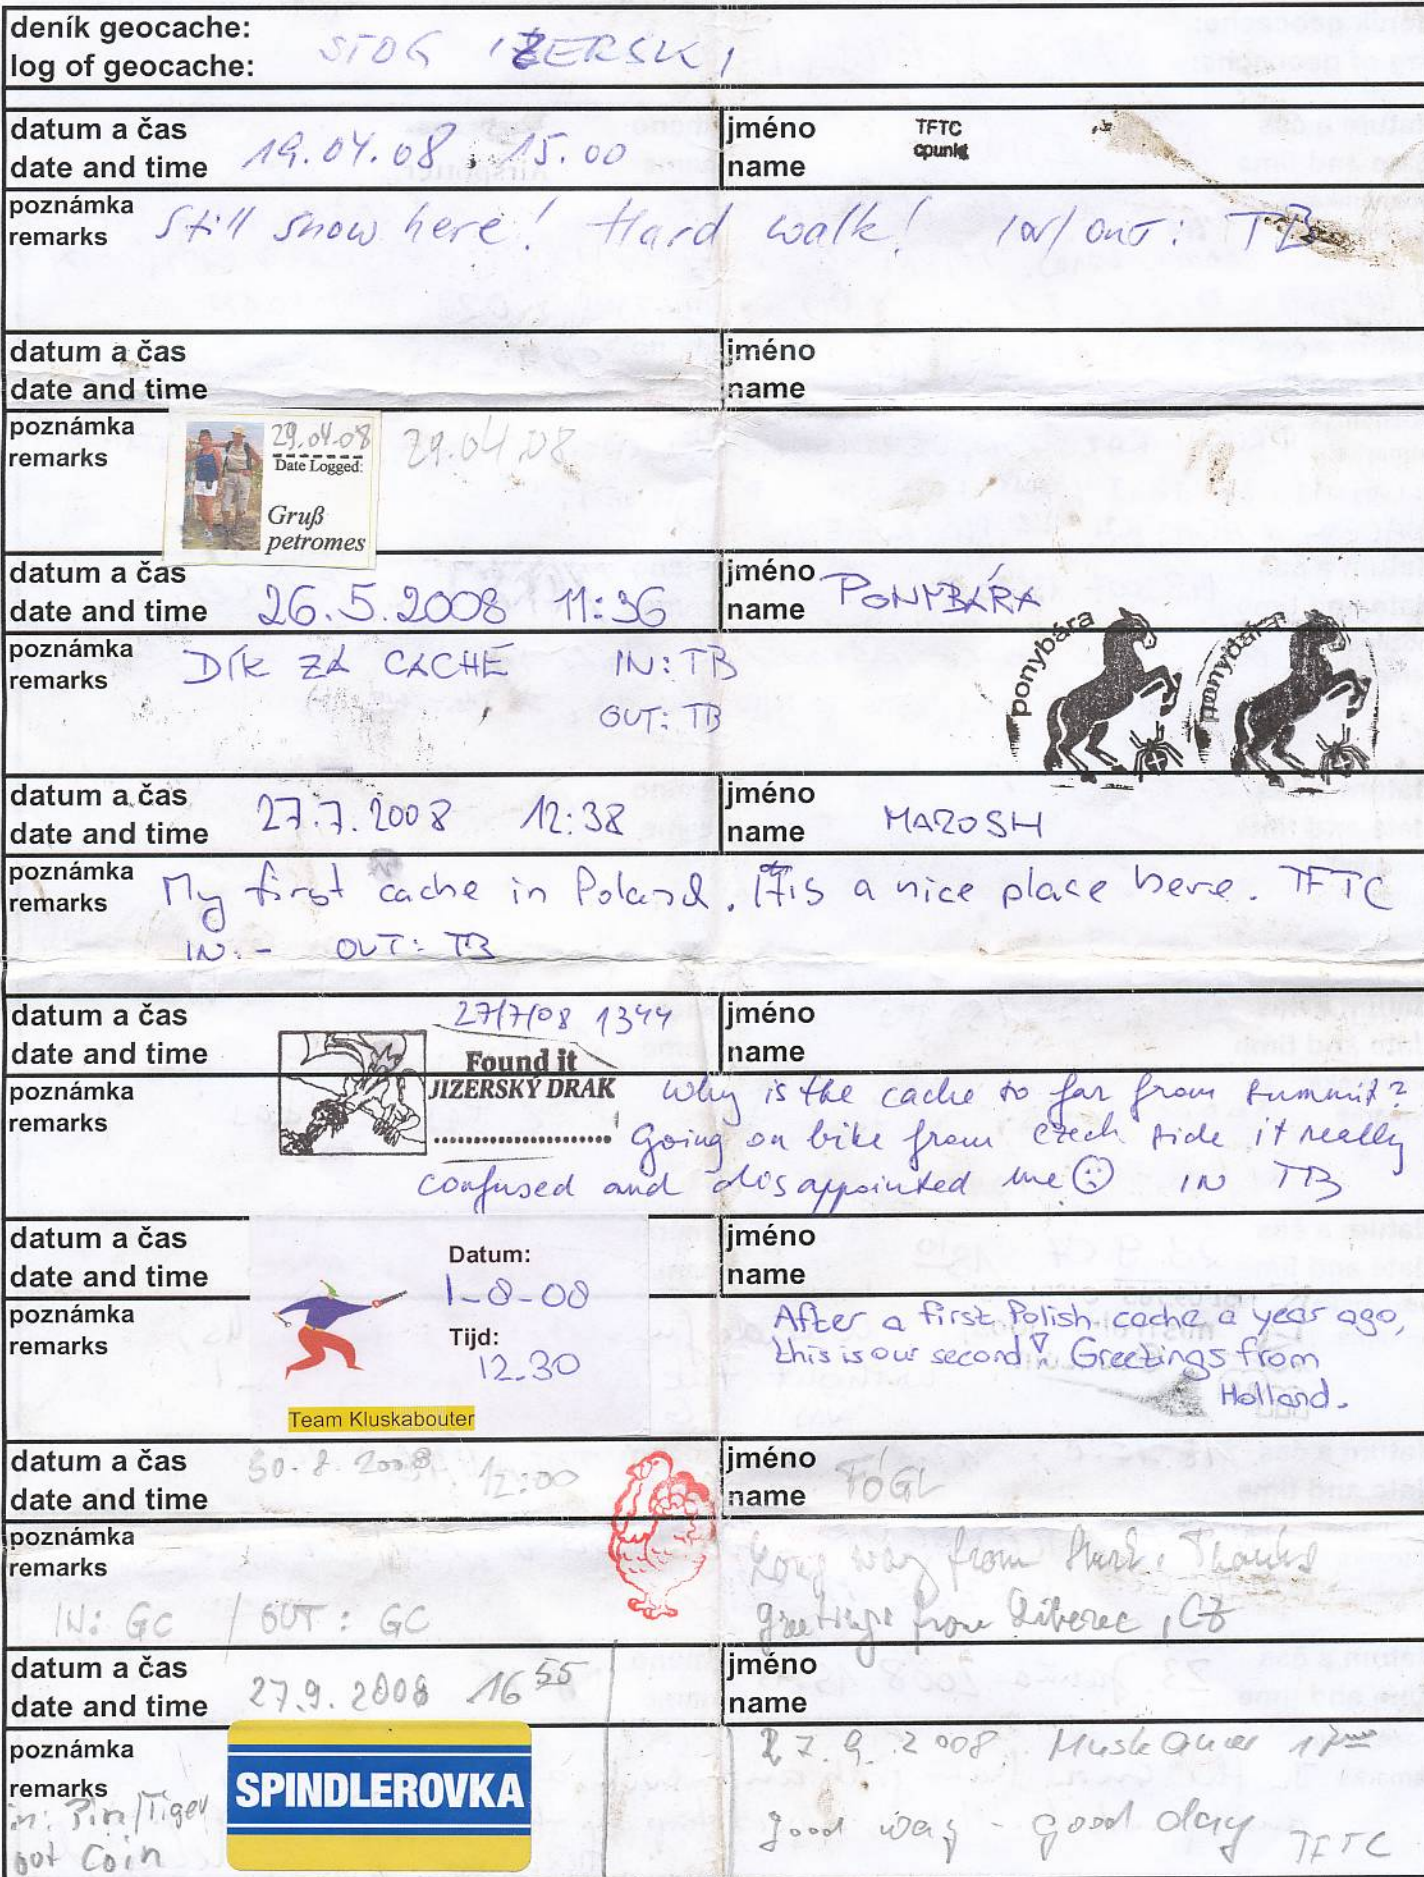 deník geocache:
log of geocache:
STOG IZERSKI
datum a čas
date and time
19.04.08, 15.00
jméno
name
TFTC
cpunkt
poznámka
remarks
Still snow here! Hard walk! in/out: TB
datum a čas
date and time
jméno
name
poznámka
remarks
29.04.08
Date Logged:
Gruß
petromes
29.04.08
datum a čas
date and time
26.5.2008 11:36
jméno
name
PONYBÁRA
poznámka
remarks
DÍK ZA CACHE IN: TB
OUT: TB
ponybára
ponybára
datum a čas
date and time
27.7.2008 12:38
jméno
name
MAROSH
poznámka
remarks
My first cache in Poland. It is a nice place here. TFTC
IN: - OUT: TB
datum a čas
date and time
27/7/08 1344
jméno
name
Found it
JIZERSKÝ DRAK
poznámka
remarks
Why is the cache so far from summit?
Going on bike from Czech side it really
confused and disappointed me ☹ IN TB
datum a čas
date and time
Datum:
1-8-08
Tijd:
12.30
Team Kluskabouter
jméno
name
poznámka
remarks
After a first Polish cache a year ago,
this is our second! Greetings from
Holland.
datum a čas
date and time
30.8.2008 12:00
jméno
name
FÓGL
poznámka
remarks
IN: GC / OUT: GC
Long way from Thanks
greetings from Liberec, CZ
datum a čas
date and time
27.9.2008 16 55
jméno
name
poznámka
remarks
in: Pin/Tiger
out Coin
SPINDLEROVKA
27.9.2008 Muskauer
good way - good day TFTC